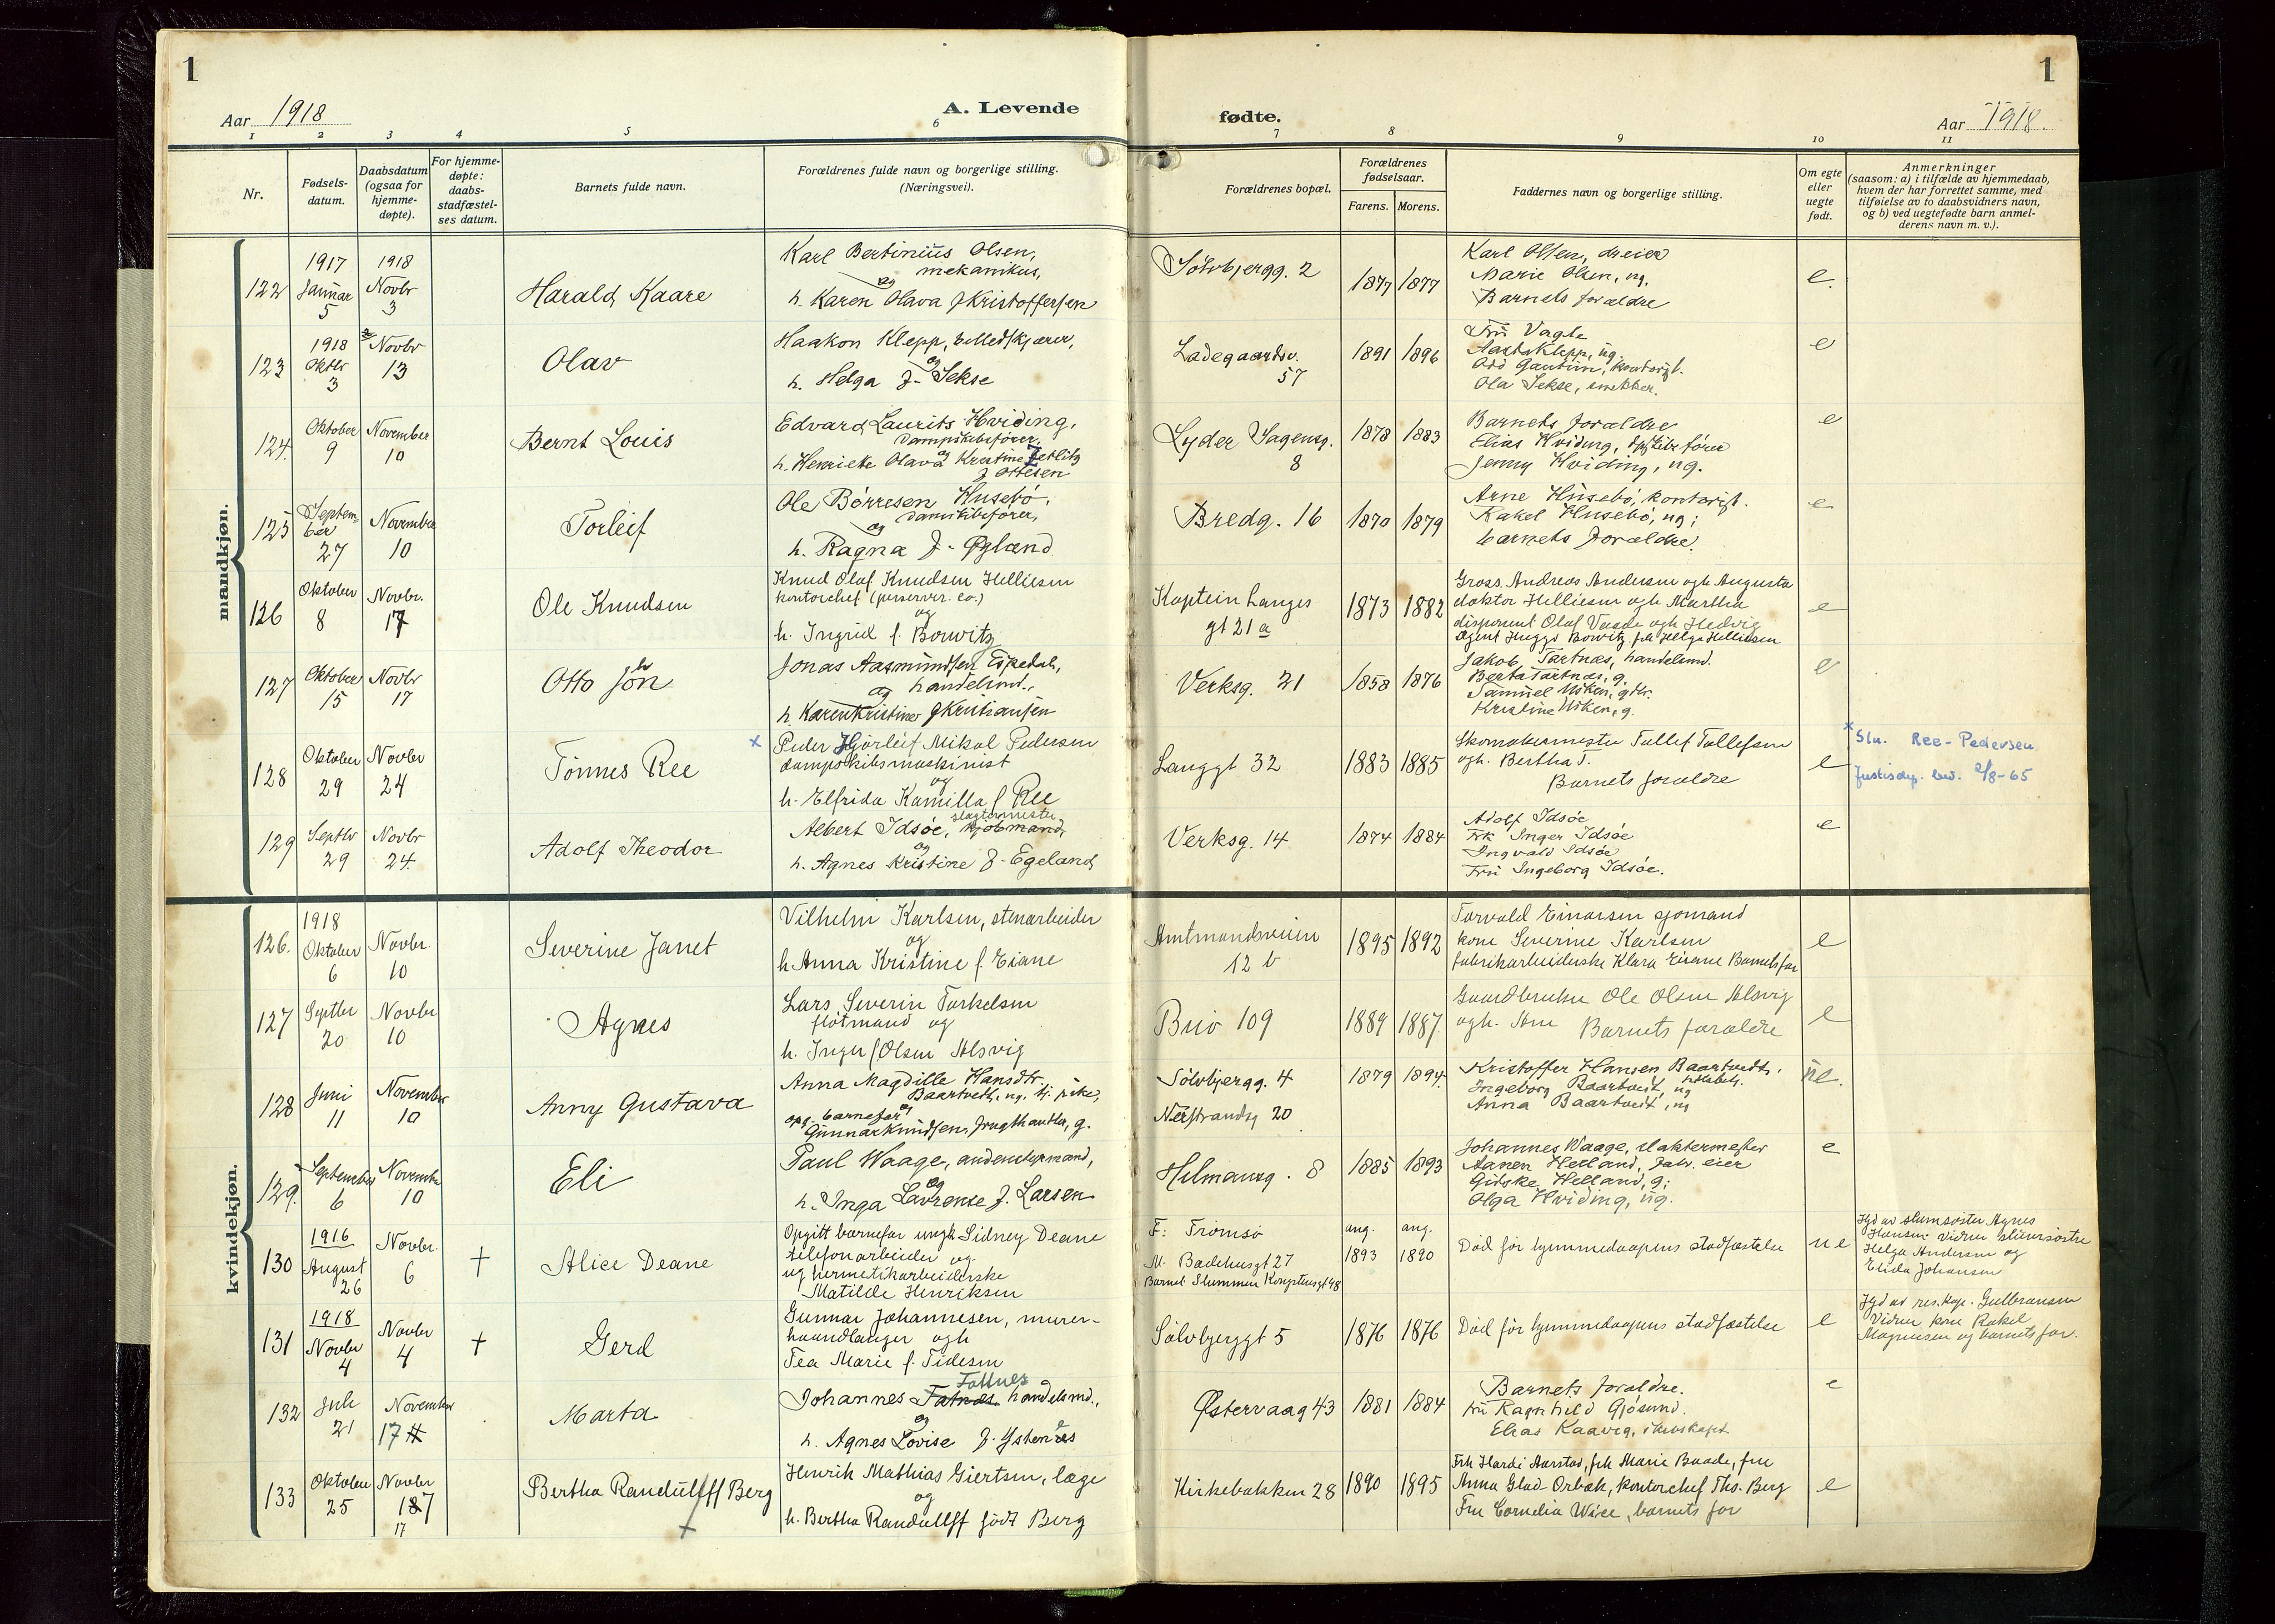 1
1
Aar 1918
A. Levende
fødte.
Aar 1918.
1 2 3 4 5 6 7 8 9 10 11
Nr.
Fødsels-
datum.
Daabsdatum
(ogsaa for
hjemme-
døpte).
For hjemme-
døpte:
daabs-
stadfæstel-
ses datum.
Barnets fulde navn.
Forældrenes fulde navn og borgerlige stilling.
(Næringsvei).
Forældrenes bopæl.
Forældrenes
fødselsaar.
Farens. Morens.
Faddernes navn og borgerlige stilling.
Om egte
eller
uegte
født.
Anmerkninger
(saasom: a) i tilfælde av hjemmedaab,
hvem der har forrettet samme, med
tilføielse av to daabsvidners navn,
og b) ved uegtefødte barn anmel-
derens navn m. v.).
mandkjøn.
122
1917
Januar
5
1918
Novbr
3
Harald Kaare
Karl Bertinius Olsen,
mekanikus,
og
h. Karen Olava f Kristoffersen
Sølvbjergg. 2
1877 1877
Karl Olsen, dreier
Marie Olsen, ug.
Barnets forældre
e.
123
1918
Oktbr
3
Novbr
13
Olav
Haakon Klepp, billedskjærer,
og
h. Helga f. Sekse
Ladegaardsv.
57
1891 1896
Fru Vagle
Aasta Klepp, ug.
Odd Gautun, kontorist.
Ola Sekse, snekker.
e
124.
Oktober
9
November
10
Bernt Louis
Edvard Laurits Hviding,
Dampskibsfører,
og
h. Henriette Olava Kristine Zetlitz
f Ottesen
Lyder Sagensg.
8
1878 1883
Barnets forældre
Elias Hviding, dpskibsfører
Jenny Hviding, ug.
e
125
Septem-
ber
27
November
10
Torleif
Ole Børresen Husebø,
Dampskibsfører,
og
h. Ragna f. Øgland
Bredg. 16
1870 1879
Arne Husebø, kontorist.
Rakel Husebø, ug;
barnets forældre.
e
126
Oktober
8
Novbr.
17
Ole Knudsen
Knud Olaf Knudsen Helliesen
kontorchef (preserver. co.)
og
h. Ingrid f. Borwitz
Kaptein Langes
gt 21 a
1873 1882
Gross. Andreas Andersen ogh Augusta
doktor Helliesen ogh Martha
disponent Olaf Vaage ogh Hedvig
agent Huggo Borwitz, frk Helga Helliesen
e
127
Oktober
15
Novbr
17
Otto Jon
Jonas Aasmundsen Espedal,
og handelsmd.,
h. Karen Kristine f Kristiansen
Verksg. 21
1858 1876
Jakob Tartnæs, handelsmd.
Berta Tartnæs, g.
Samuel Usken, gbr.
Kristine Usken, g.
e
128
Oktober
29
Novbr
24
Tønnes Ree
x Peder Hjørleif Mikal Pedersen
dampskibsmaskinist
og
h. Elfrida Kamilla f Ree
Langgt 32
1883 1885
Skomakermester Tollef Tollefsen
ogh. Bertha T.
Barnets forældre
e
x Sln. Ree-Pedersen
Justisdep. bev. 2/8-65
129
Septbr
29
Novbr
24.
Adolf Theodor
slagtermester
Albert Idsøe, kjøbmand,
og
h. Agnes Kristine f. Egeland
Verksg. 14
1874 1884
Adolf Idsøe
Frk Inger Idsøe
Ingvald Idsøe
Fru Ingeborg Idsøe.
e
kvindekjøn.
126.
1918
Oktober
6
Novbr.
10
Severine Janet
Vilhelm Karlsen, stenarbeider
og
h Anna Kristine f. Eiane
Amtmandsveien
12 b
1895 1892
Torvald Einarsen sjømand
kone Severine Karlsen
fabrikarbeiderske Klara Eiane Barnets far
e
127
Septbr
20
Novbr
10
Agnes
Lars Severin Torkelsen
fløtmand og
h. Inger f Olsen Alsvig
Buø 109
1889 1887.
Gaardbruker Ole Olsen Alsvig
ogh. Ane Barnets forældre
e
128
Juni
11
November
10
Anny Gustava
Anna Magdille Hansdtr.
Baartvedt, ug. tj. pike,
og
opg. barnefar
Gunnar Knudsen, frugthandler, g.
Sølvbjergg. 4
Nerstrandsg 20
1879 1894.
Kristoffer Hansen Baartvedt,
Ingeborg Baartvedt, ug
Anna Baartvedt, ug
ue.
129.
September
6
November
10
Eli
Paul Waage, andenstyrmand,
og
h. Inga Lavrense f. Larsen
Hilmansg. 8
1885 1893
Johannes Waage, slaktermester
Aanen Helland, fabr. eier
Gidske Helland, g;
Olga Hviding, ug.
e
130
1916
August
26
Novbr.
6
†
Alice Deane
Opgitt barnefar ungk Sidney Deane
telefonarbeider og
ug hermetikarbeiderske
Matilde Henriksen
F: Tromsø
M. Badehusgt 27
Barnet Slummen Kongsteinsgt 48
ang. ang.
1893 1890
Død før hjemmedaapens stadfæstelse
ue
Jfd av slumsøster Agnes
Hansen Vidner slumsøstre
Helga Andersen og
Elida Johansen
131
1918
Novbr
4
Novbr
4
†
Gerd
Gunnar Johannesen, murer-
haandlanger ogh
Tea Marie f. Tidesen
Sølvbjerggt 5
1876 1876
Død før hjemmedaapens stadfæstelse
e
Jfd av res. kap. Gulbransen
Vidner kone Rakel
Magnusen og barnets far.
132
Juli
21
November
17
Marta
Fatnes
Johannes Fatnæs handelsmd.,
og
h. Agnes Lovise f. Ystenes
Østervaag 43
1881 1884
Barnets forældre.
fru Ragnhild Gjøsund.
Elias Kaavig,
e
133
Oktober
25
Novbr
187
17
Bertha Randulff Berg
Henrik Mathias Giertsen, læge
og
h. Bertha Randulff født Berg
Kirkebakken 28
1890 1895
Frk Hardi Aarstad, frk Marie Baade, fru
Anna Glad-Orbæk, kontorchef Ths. Berg
Fru Cornelia Wiese, barnets far
e